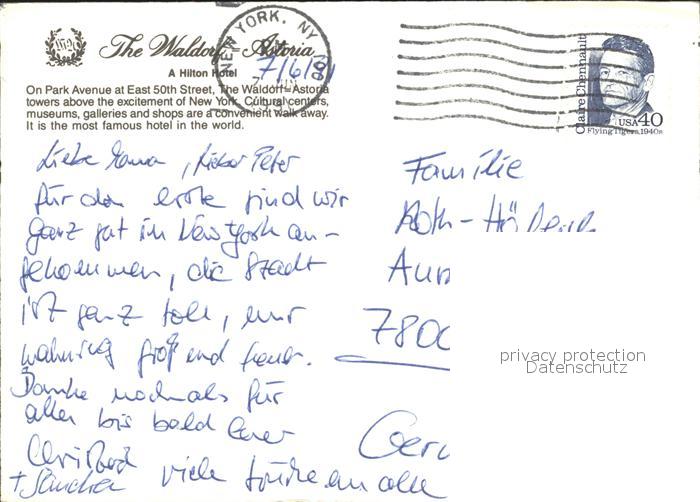 The Waldorf=Astoria
A Hilton Hotel
On Park Avenue at East 50th Street, The Waldorf=Astoria
towers above the excitement of New York. Cultural centers,
museums, galleries and shops are a convenient walk away.
It is the most famous hotel in the world.
NEW YORK, NY
7/6/91
Claire Chennault
USA 40
Flying Tigers, 1940s
Liebe Mama, lieber Peter
für das erste sind wir
ganz gut in New York an-
gekommen, die Stadt
ist ganz toll, nur
wahnsinnig groß und teuer.
Danke nochmals für
alles bis bald Euer
Christford
+ viele Grüße an alle
Familie
Roth-
7800
privacy protection
Datenschutz